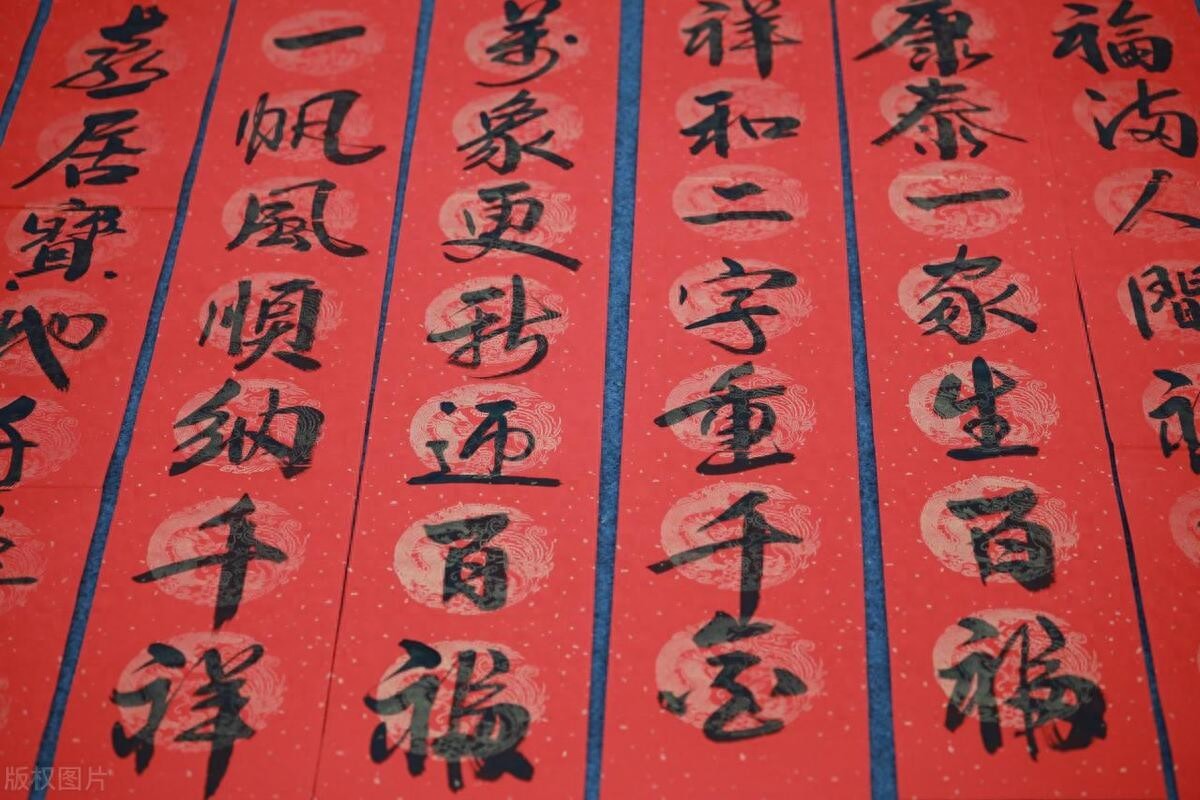 福滿人間
康泰一家生百福
祥和二字重千金
萬象更新迎百福
一帆風順納千祥
喜居寶地
版权图片